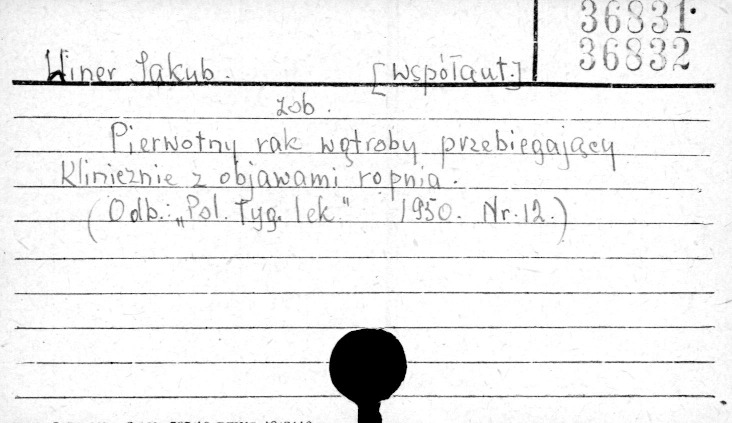 36831.
36832
Winer Jakub. [współaut.]
zob.
Pierwotny rak wątroby przebiegający
klinicznie z objawami ropnia.
(Odb.: „Pol. Tyg. lek." 1950. Nr. 12.)